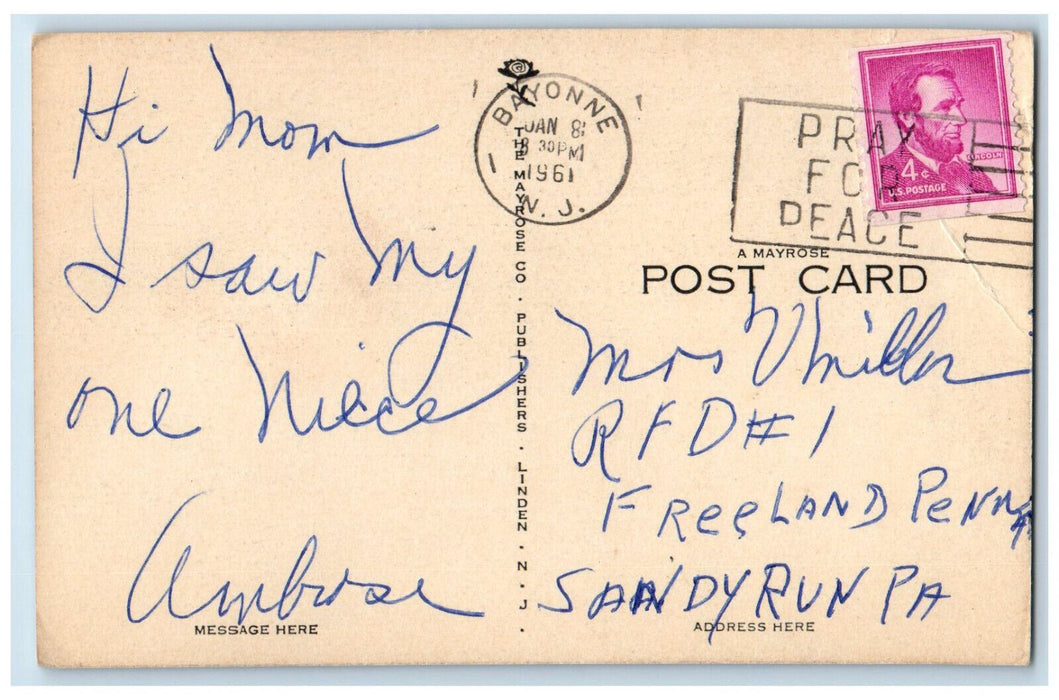 Hi Mom
I saw My
one Niece
Ambrose
MESSAGE HERE
THE MAYROSE CO. PUBLISHERS. LINDEN. N. J.
BAYONNE
JAN 8
30PM
1961
N. J.
PRAY
FOR
PEACE
LINCOLN
4¢
U.S. POSTAGE
A MAYROSE
POST CARD
Mrs V Miller
RFD#1
FReeLAND PeNNA
SANDY RUN PA
ADDRESS HERE